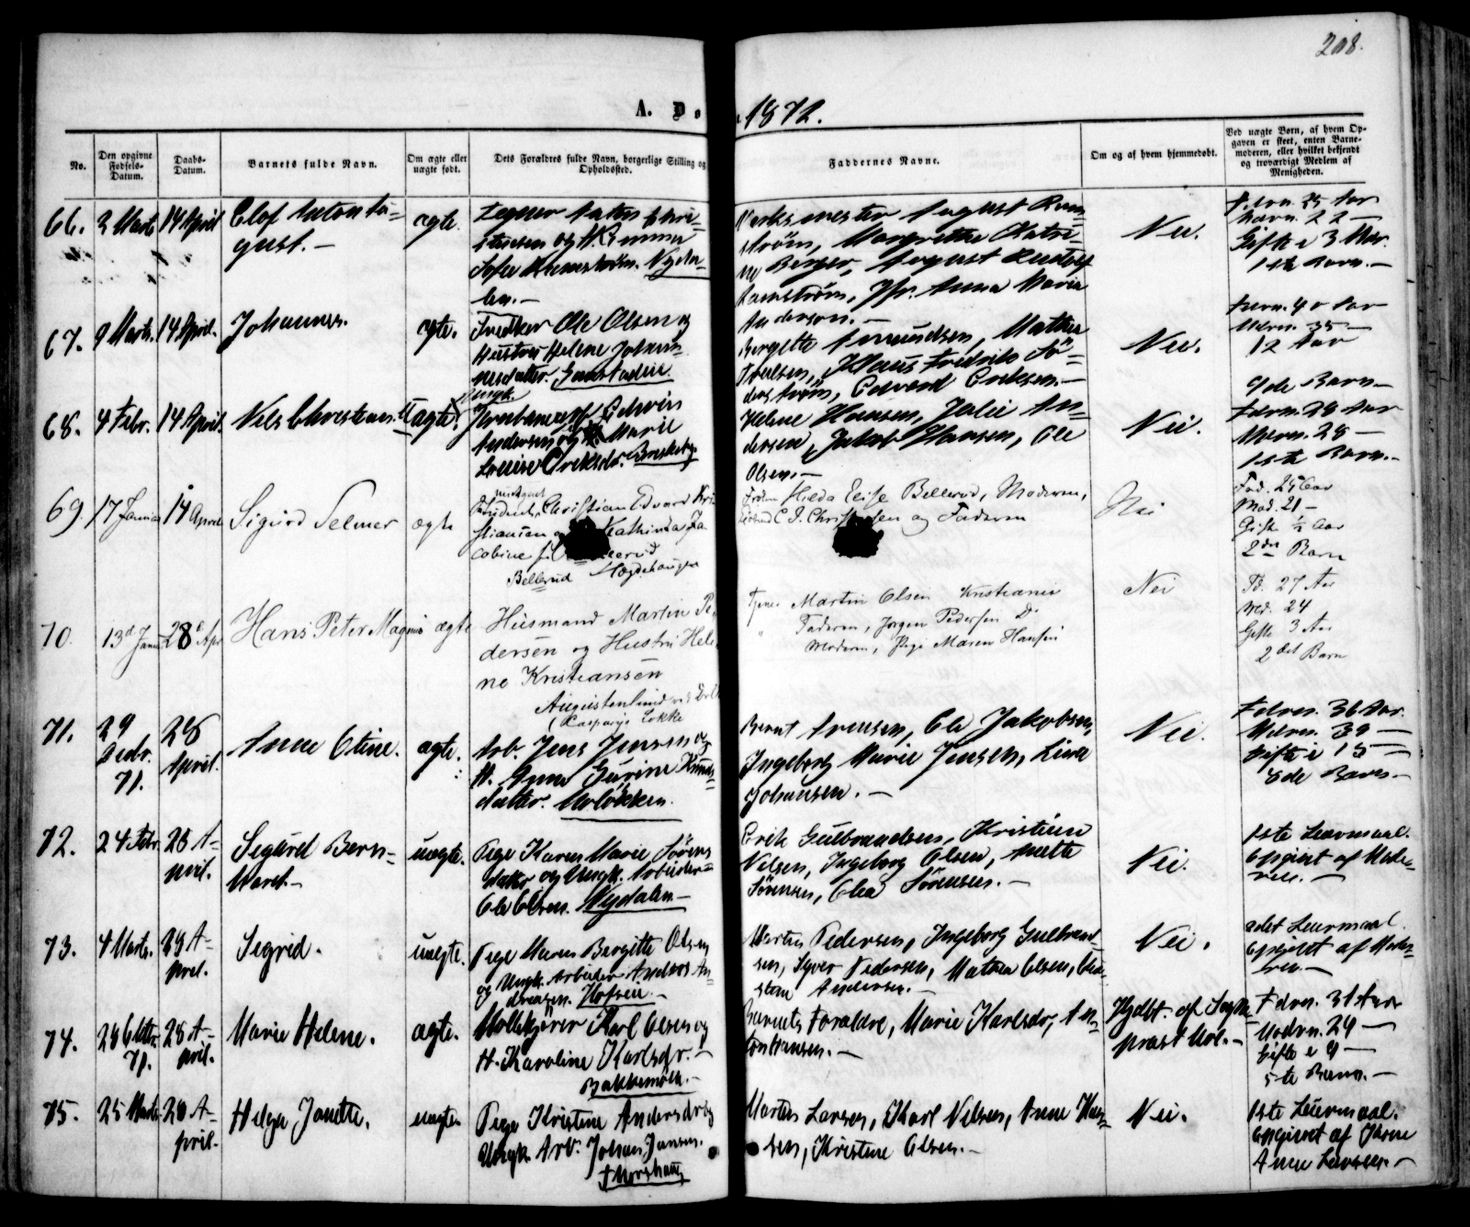 208.
A. Dø
1872.
No.
Den opgivne Fødsels-Datum.
Daabs-Datum.
Barnets fulde Navn.
Om ægte eller uægte født.
Dets Forældres fulde Navn, borgerlige Stilling og Opholdssted.
Faddernes Navne.
Om og af hvem hjemmedøbt.
Ved uægte Børn, af hvem Opgaven er skeet, enten Barnemoderen, eller hvilket bekjendt og troværdigt Medlem af Menigheden.
66. 3 Marts 14 April Olof Anton Au-
gust. –
ægte.
Anton Chri-
stensen og H. Emma
Sofie Nyda-
len. –
August Ram-
strøm, Margrethe Katri-
ne Berger, August Rudolf
Ramstrøm, Jfr. Anna Maria
Anderson. –
Nei.
Fdrn. 25 Aar
Mdrn. 22 –
Gifte i 3 Mdr.
1ste Barn. –
67. 9 Marts. 14 April. Johannes.
ægte.
Snedker Ole Olsen og
Hustru Helene Johan-
nesdatter.
Bergitte Amundsen, Mathea
Poulsen, Klaus Fredrik Sö-
derstrøm, Edvard Eriksen. –
Nei.
Fdrn. 40 Aar
Mdrn. 35 –
12 Aar
9de Barn –
68. 4 Febr. 14 April. Nils Christian.
uægte.
Ungk.
Edvin
Andersen og Marie
Louise Eriksdr.
Helene Hansen, Julie An-
dersen, Jakob Hansen, Ole
Olsen. –
Nei.
Fdrn. 28 Aar
Mdrn. 28 –
1ste Barn. –
69 17 Januar 14 April Sigurd Selmer
ægte
Christian Edvard Kri-
stiansen og Kathinka Ja-
cobine
Bellerud Hægdehaugen
Hilda Elise Bellerud, Moderen,
C. J. Christensen og Faderen
Nei
Fad. 25 Aar
Mod. 21 –
Gift ½ Aar
2det Barn
70 13d Janu 28e Apr Hans Peter Magnus ægte
Husmand Martin Pe-
dersen og Hustru Hele-
ne Kristiansen
Augustenlund
Casparys Løkke
Tjener Martin Olsen Kristiania
Faderen, Jørgen Pedersen Do
Moderen, Pige Maren Hansen
Nei
Fd. 27 Aar
Md. 24
Gifte 3 Aar
2det Barn
71. 29
Decbr.
71.
28
April.
Anne Otine.
ægte.
Arb. Jens Jensen og
H. Anne Gurine Knuds-
datter. Moløkken.
Bernt Svensen, Ole Jakobsen,
Ingeborg Marie Jensen, Lina
Johansen. –
Nei.
Fdrn. 36 Aar.
Mdrn. 39 –
Gifte i 15 –
6de Barn. –
72. 24 Febr. 28 A-
pril.
Sigurd Bern-
hard. –
uægte.
Pige Karen Marie Sørens
datter og Ungk. Arbeider
Ole Olsen. Nydalen –
Erik Gulbrandsen, Kristian
Nilsen, Ingeborg Olsen, Mette
Sørensen, Olea Sørensen. –
Nei.
1ste Leiermaal.
Opgivet af Mode-
ren. –
73. 4 Marts. 28 A-
pril.
Sigrid.
uægte.
Pige Maren Bergitte Olsen
og Ungk. Arbeider Andreas An-
dreasen. Hofsin. –
Martin Pedersen, Ingeborg Gulbrand-
sen, Syver Pedersen, Mathea Olsen, Chri-
stian Andersen. –
Nei.
2det Leiermaal.
Opgivet af Mode-
ren –
74. 26 Oktbr.
71.
28 A-
pril.
Marie Helene.
ægte.
Møllekjører Karl Olsen og
H. Karoline Karlsdr. –
Bakkemøll. –
Barnets Foraldre, Marie Karlsdr, An-
ton Hansen. –
Hjdbt. af Sogne-
præst Mol. –
Fdrn. 31 Aar
Modrn. 29 –
Gifte i 9 –
5te Barn. –
75. 25 Marts. 28 A-
pril.
Helga Janette.
uægte.
Pige Kristine Andersdr og
Ungk. Arb. Johan Jansen.
Martin Larsen, Karl Nilsen, Anne Han-
sen, Kristine Olsen. –
Nei.
1ste Leiermaal.
Opgivet af
Anne Larsen. –